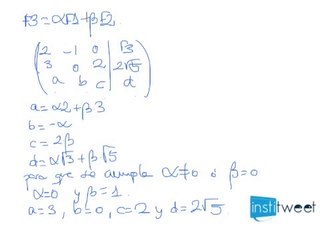 F3=αF1+βF2
2 -1 0 | √3
3 0 2 | 2√5
a b c | d
a=α2+β3
b=-α
c=2β
d=α√3+β√5
para que se cumpla α≠0 o β=0
α=0 y β=1.
a=3, b=0, c=2 y d=2√5.
instítweet